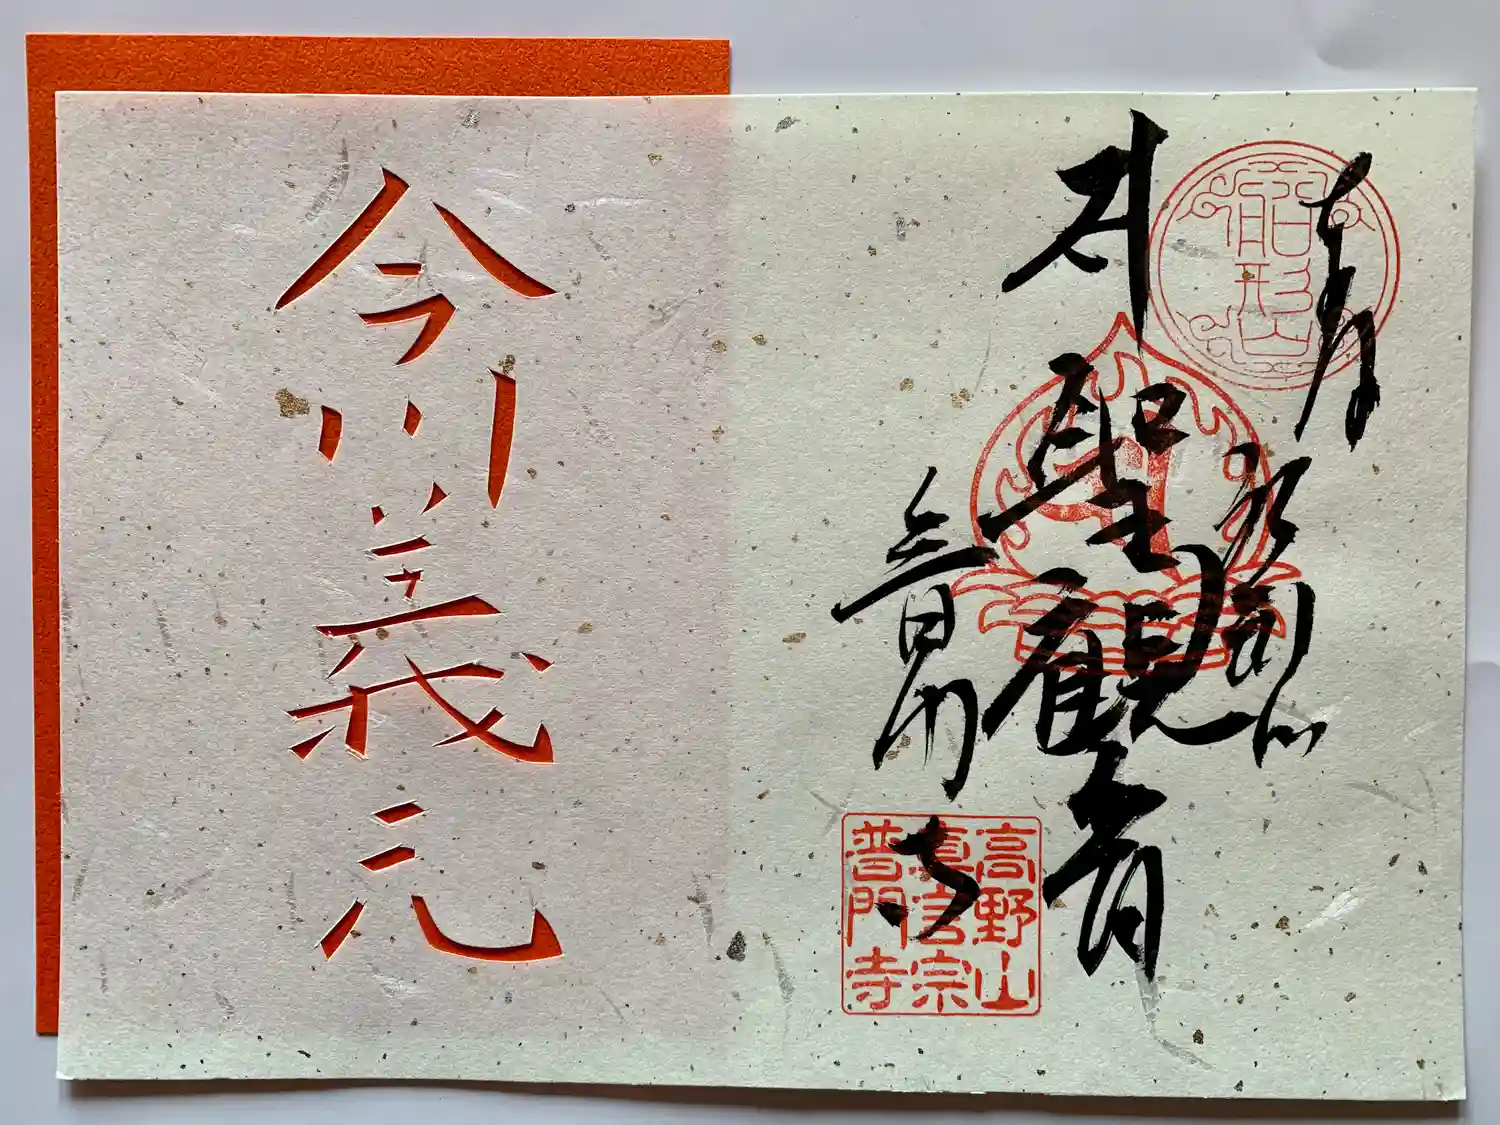 船形山
聖観音
普門寺
高野山
真言宗
普門寺
今川義元